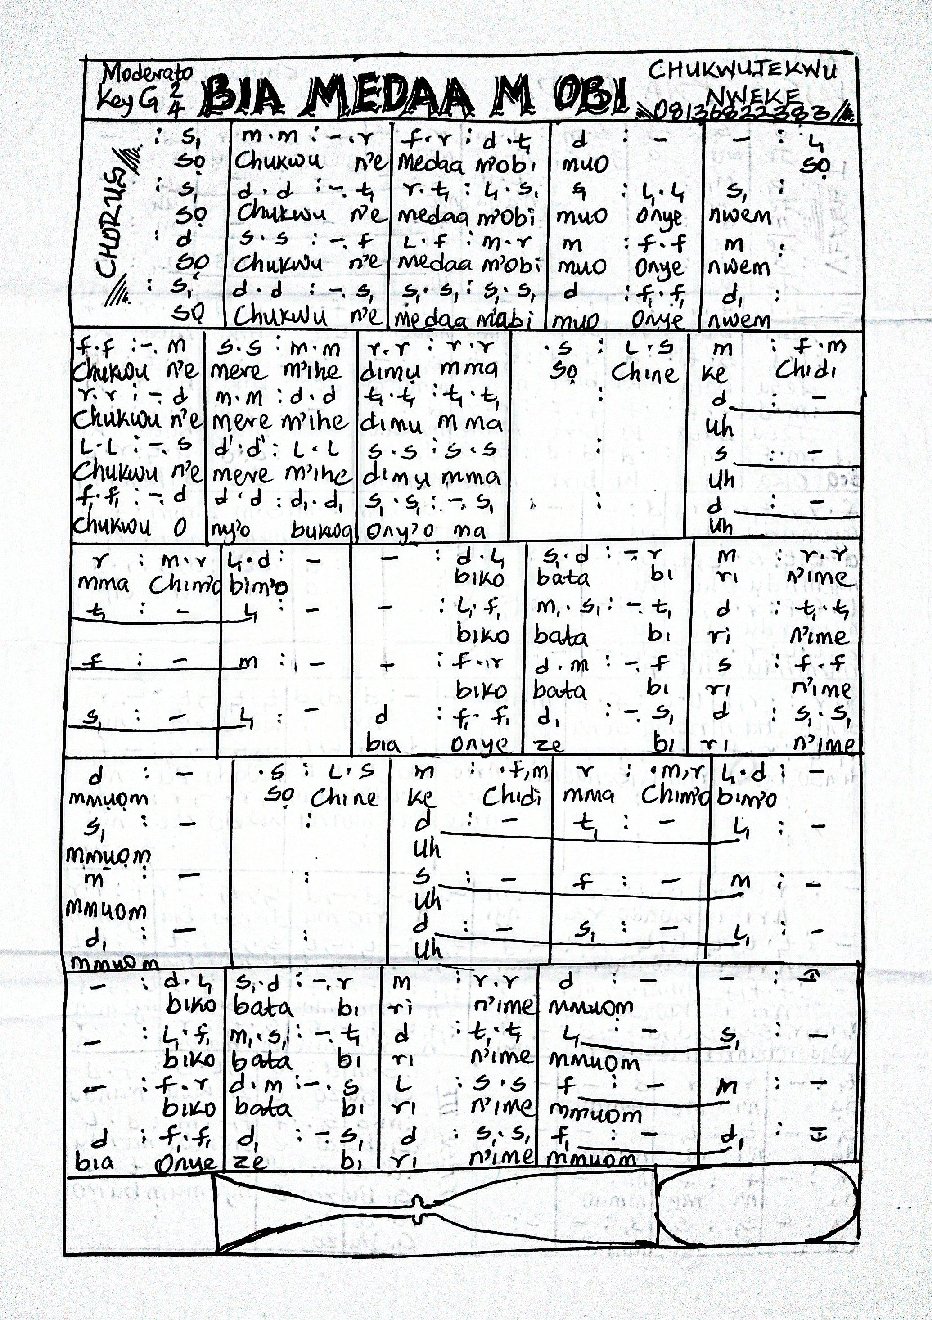 Moderato
Key G 2/4
BIA MEDAA M OBI
CHUKWUJEKWU
NWEKE
08136822383
CHORUS
: s₁ | m.m :-.r | f.r : d.t₁ | d : - | - : l₁
sọ Chukwu n'e medaa m'obi muo sọ
: s₁ | d.d :-.t₁ | r.t₁ : l₁.s₁ | s₁ : l₁.l₁ | s₁ :
sọ Chukwu n'e medaa m'obi muo onye nwem
: d | s.s :-.f | l.f : m.r | m : f.f | m :
so Chukwu n'e medaa m'obi muo onye nwem
: s₁ | d.d :-.s₁ | s₁.s₁ : s₁.s₁ | d : f₁.f₁ | d₁ :
sọ Chukwu n'e medaa m'obi muo onye nwem
f.f :-.m | s.s : m.m | r.r : r.r | .s : l.s | m : f.m
Chukwu n'e mere m'ihe dimụ mma sọ Chine ke Chidi
r.r :-.d | m.m : d.d | t₁.t₁ : t₁.t₁ | : | d : -
Chukwu n'e mere m'ihe dimu mma Uh
l.l :-.s | d'.d' : l.l | s.s : s.s | : | s : -
Chukwu n'e mere m'ihe dimụ mma Uh
f₁.f₁ :-.d | d.d : d₁.d₁ | s₁.s₁ :-.s₁ | : | d : -
chukwu o ny'o bukwa ony'o ma Uh
r : m.r | l₁.d : - | - : d.l₁ | s₁.d :-.r | m : r.r
mma Chim'o bim'o biko bata bi ri n'ime
t₁ : - | l₁ : - | - : l₁.f₁ | m₁.s₁ :-.t₁ | d : t₁.t₁
biko bata bi ri n'ime
f : - | m : - | - : f.r | d.m :-.f | s : f.f
biko bata bi ri n'ime
s₁ : - | l₁ : - | d : f₁.f₁ | d₁ :-.s₁ | d : s₁.s₁
bia onye ze bi ri n'ime
d : - | .s : l.s | m : .f,m | r : .m,r | l₁.d : -
mmụọm sọ Chine ke Chidi mma Chim'o bim'o
s₁ : - | : | d : - | t₁ : - | l₁ : -
mmụọm Uh
m : - | : | s : - | f : - | m : -
mmuọm Uh
d₁ : - | : | d : - | s₁ : - | l₁ : -
mmuọm Uh
- : d.l₁ | s₁.d :-.r | m : r.r | d : - | - :
biko bata bi ri n'ime mmụọm
- : l₁.f₁ | m₁.s₁ :-.t₁ | d : t₁.t₁ | l₁ : - | s₁ : -
biko bata bi ri n'ime mmụọm
- : f.r | d.m :-.s | l : s.s | f : - | m : -
biko bata bi ri n'ime mmuọm
d : f₁.f₁ | d₁ :-.s₁ | d : s₁.s₁ | f₁ : - | d₁ :
bia onye ze bi ri n'ime mmuọm